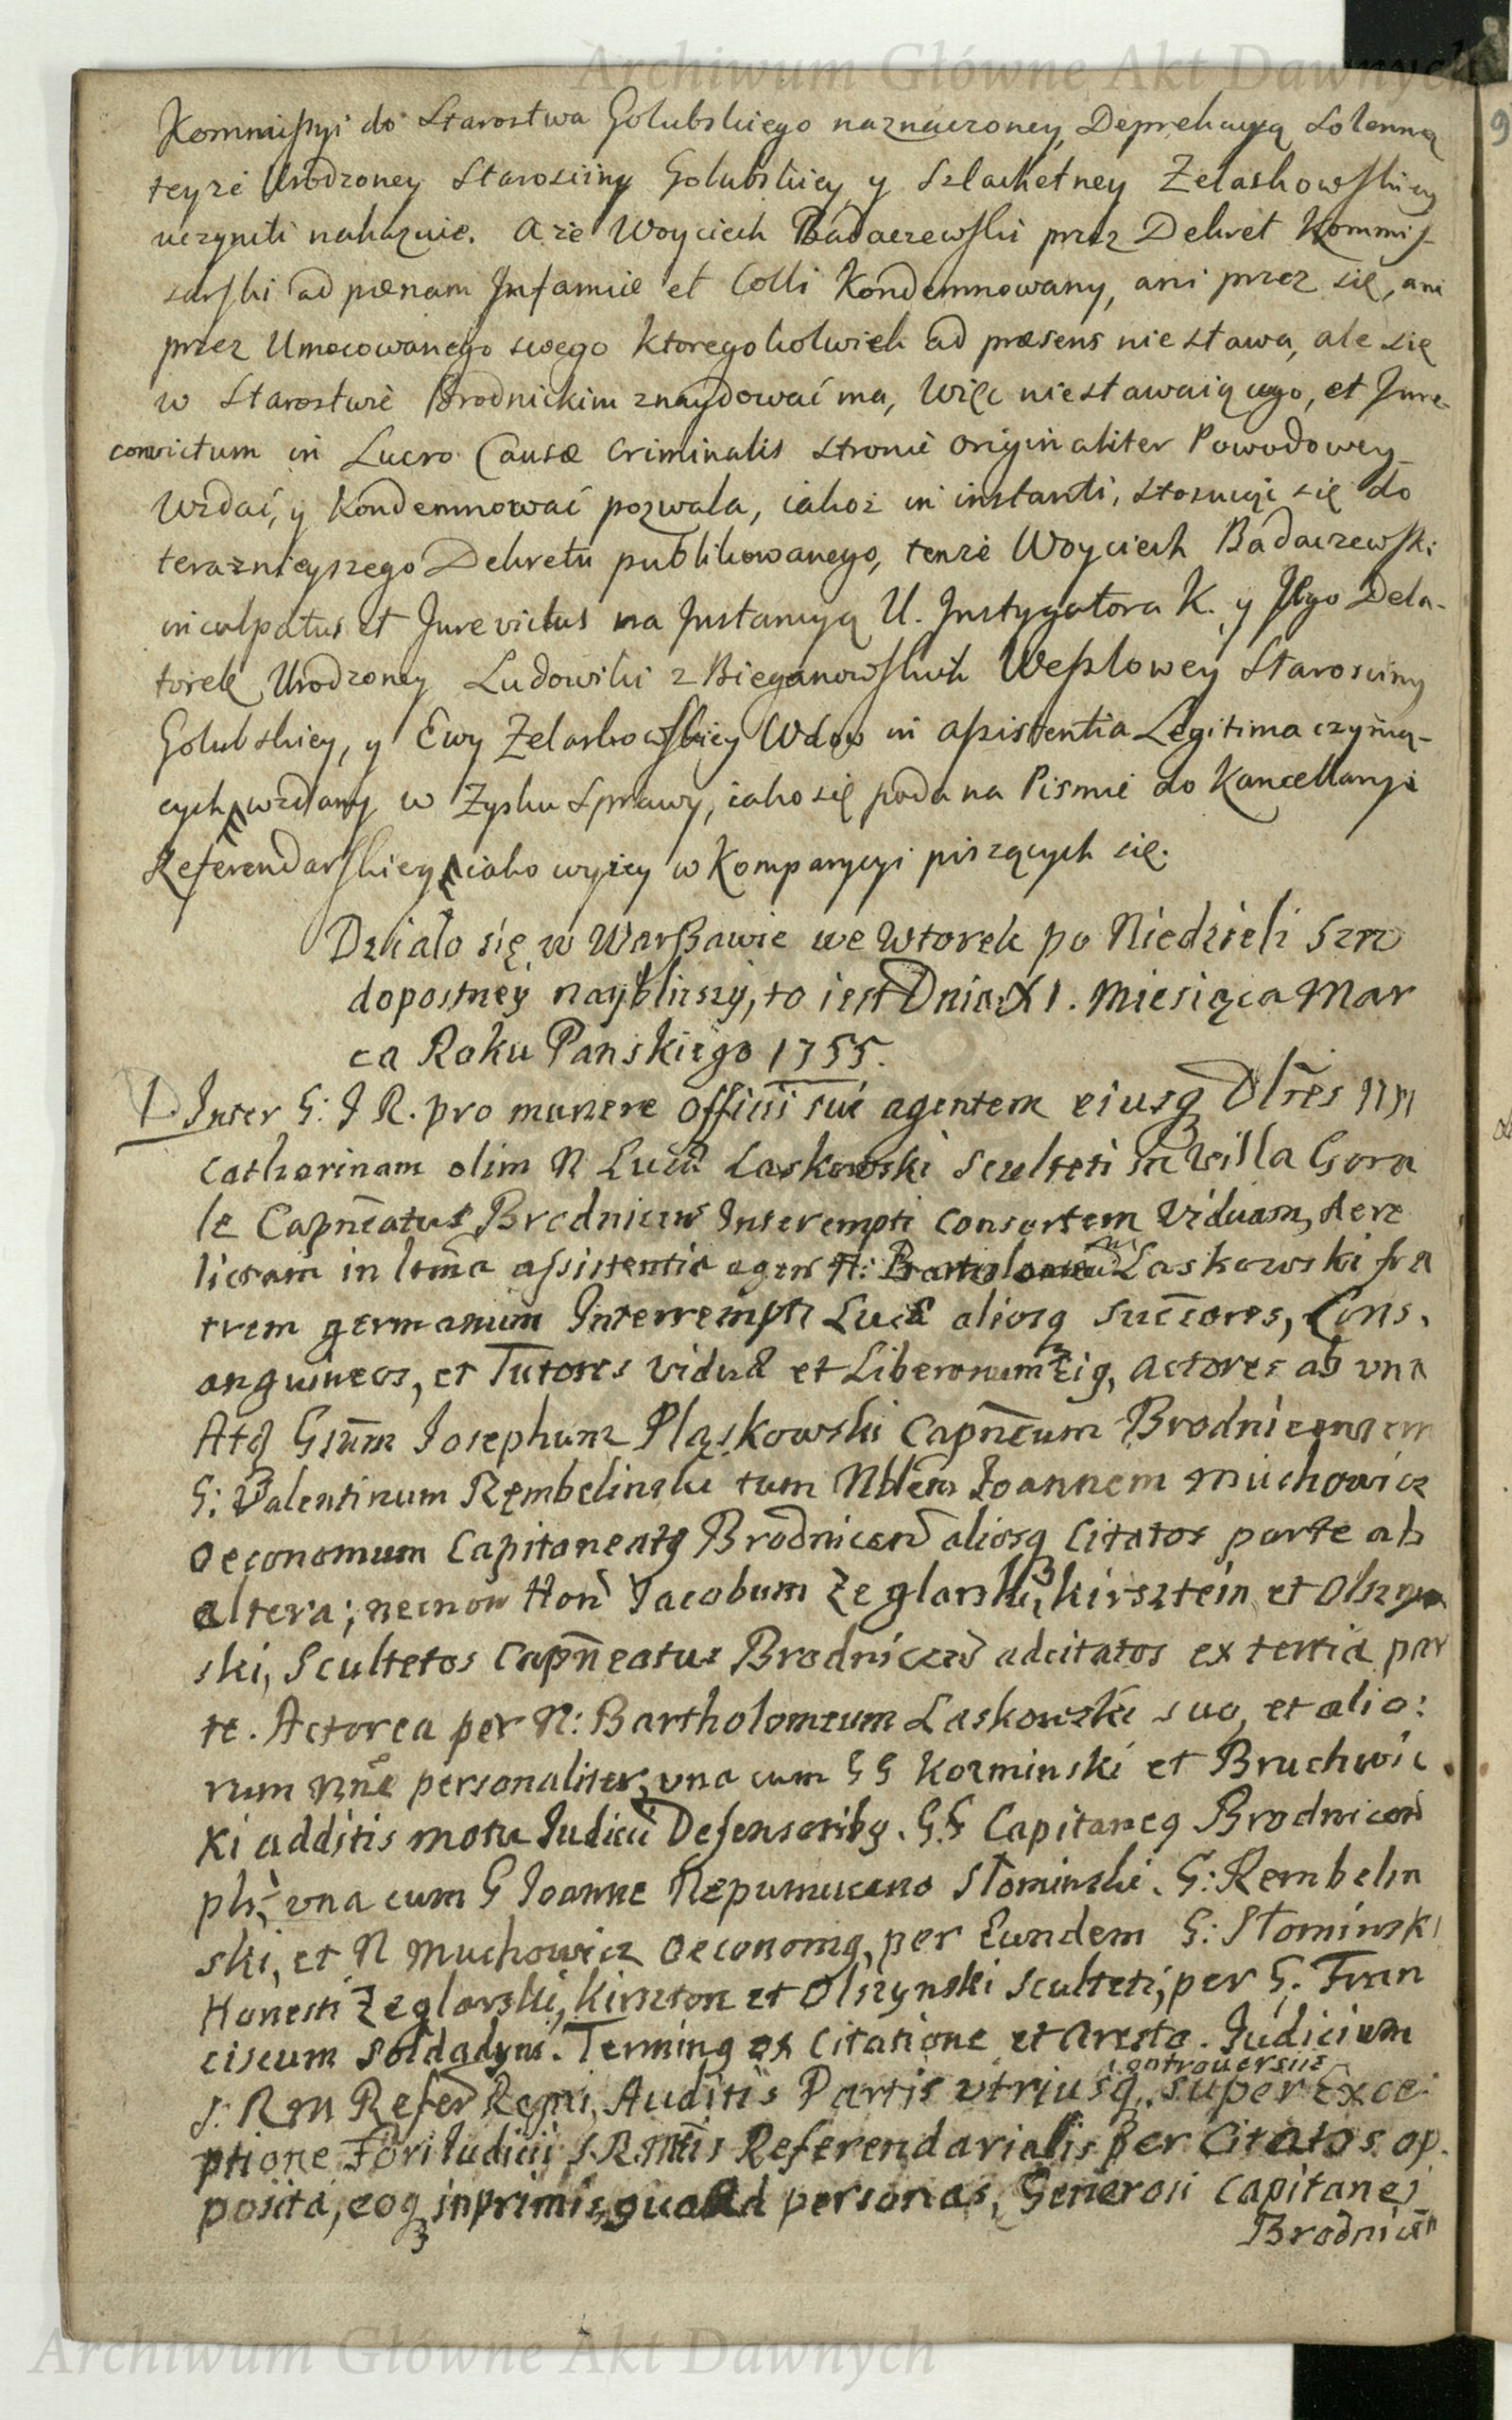 Archiwum Główne Akt Dawnych
Kommissyi do Starostwa Golubskiego naznaczoney, Deprekacyą Solenną
teyże Urodzoney Starosciiny Golubskiey y Szlachetney Zelaskowskiey
uczynili nakazuie. A że Woyciech Badaczewski przez Dekret Kommis-
sarski ad pœnam Infamiæ et Colli Kondemnowany, ani przez się, ani
przez Umocowanego swego ktoregokolwiek ad præsens nie stawa, ale się
w Starostwie Brodnickim znaydować ma, Więc niestawaiącego, et Jure
convictum in Lucro Causæ Criminalis stronie originaliter Powodowey
Wzdać, y Kondemnować pozwala, iakoż in instanti, stosuiąc się do
teraznieyszego Dekretu publikowanego, tenże Woyciech Badaczewski
inculpatus et Jure victus na Instancyą U. Instygatora K. y Jego Dela-
torek Urodzoney Ludowiki z Bieganowskich Wesslowey Starosciny
Golubskiey, y Ewy Zelaskowskiey Wdow in assistentia Legitima czynią-
cych wzdany w Zysku Sprawy, iako się poda na Pismie do Kancellaryi
Referendarskiey iako wyżey w Komparycyi piszących się.
Działo się w Warszawie we Wtorek po Niedzieli Szro
dopostney naybliszy, to iest Dnia XI. Miesiąca Mar
ca Roku Panskiego 1755.
1. Inter G: I R. pro munere officii sui agentem eiusq Dltres NN
Catharinam olim N Lucæ Laskowski Sculteti in Villa Gora
le Capneatus Brodnicen Interempti consortem Viduam, dere
lictam in ltma assistentia agen N: Bartholomæum Laskowski fra
trem germanum Interrempti Lucæ aliosq Succores, Cons.
anguineos, et Tutores viduæ et Liberorum Eig, actores ab una
Atq Gsum Josephum Pląskowski Capneum Brodnicensem
G: Valentinum Rembelinski tum Nblem Joannem Muchowicz
Oeconomum Capitaneatq Brodnicen aliosq Citatos parte ab
altera; necnon Hon Jacobum Zeglarski, Kirsztein et Olszyn
ski, Scultetos Capneatus Brodnicen adcitatos ex tertia par
te. Actorea per N: Bartholomeum Laskowski suo, et alio:
rum nne personaliter, una cum GG Kozminski et Bruchwic
ki additis motu Iudicii Defensoribq. GG Capitaneq Brodnicen
plr, una cum G Joanne Nepumuceno Słominski. G: Rembelin
ski, et N Muchowicz Oeconomq, per Eundem G: Słominski
Honesti Zeglarski, Kirszton et Olszynski Sculteti, per G. Fran
ciscum Soldadyni. Terminq ex Citatione et Aresto. Iudicium
S: RM Refer Regni, Auditis Partis utriusq, controversiis super Exce
ptione Fori Iudicii S.R.Mttis Referendarialis per Citatos op.
posita, eoq inprimis, quoad personas, Generosi Capitanei
Brodnicen
Archiwum Główne Akt Dawnych